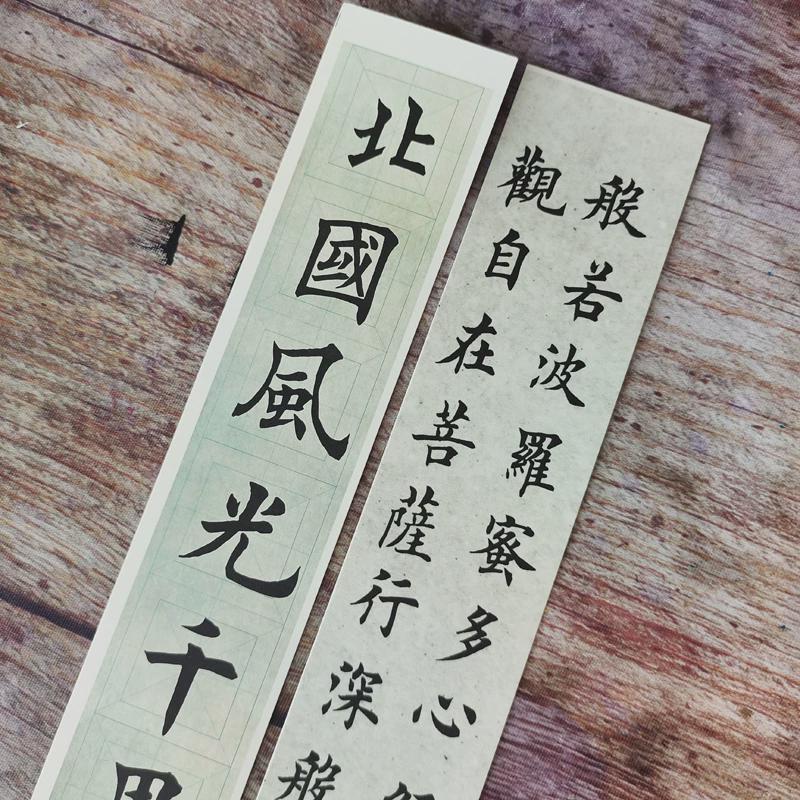 般若波羅蜜多心
觀自在菩薩行深般
北國風光千